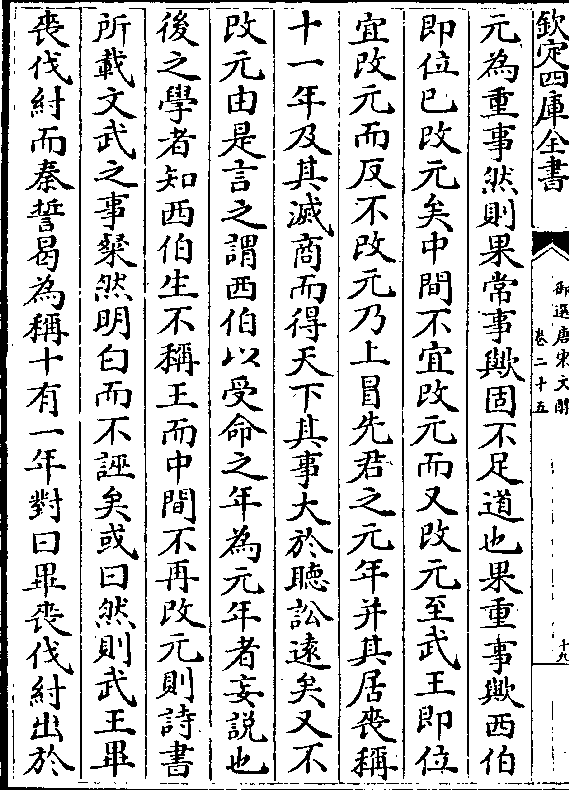 欽定四庫全書
御選唐宋文醇
卷二十五
十九
元為重事然則果常事歟固不足道也果重事歟西伯
即位已改元矣中間不宜改元而又改元至武王即位
宜改元而反不改元乃上冒先君之元年并其居喪稱
十一年及其滅商而得天下其事大於聽訟遠矣又不
改元由是言之謂西伯以受命之年為元年者妄說也
後之學者知西伯生不稱王而中間不再改元則詩書
所載文武之事粲然明白而不誣矣或曰然則武王畢
喪伐紂而泰誓曷為稱十有一年對曰畢喪伐紂出於